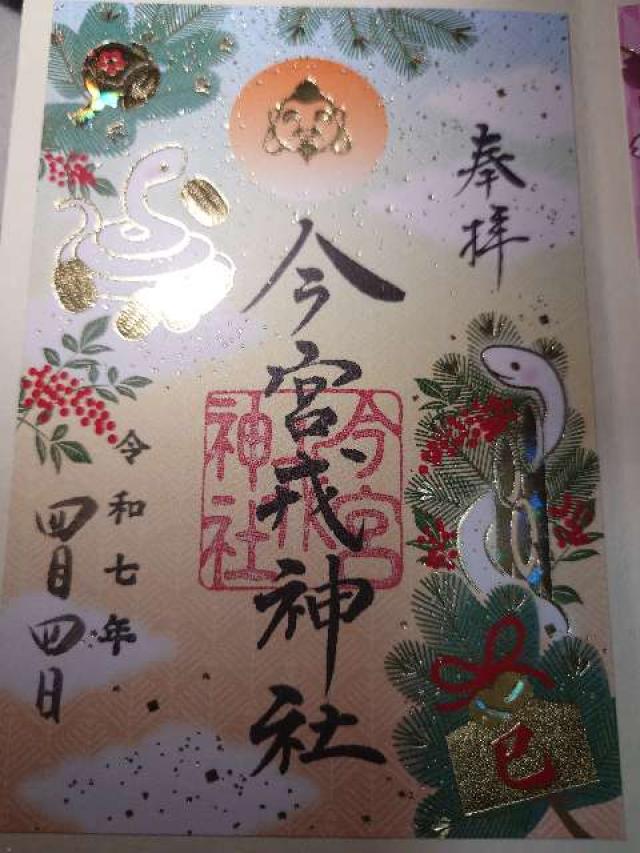 奉拝
今宮戎神社
今宮戎神社
令和七年
四月四日
巳